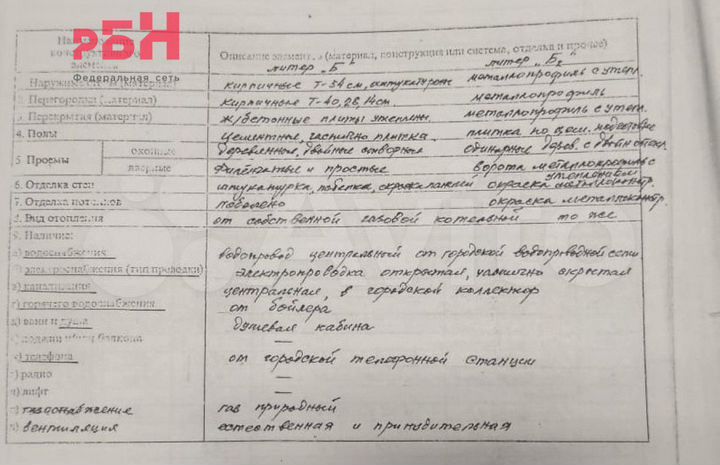 РБН
Федеральная сеть
Описание элемент (материал, конструкция или система, отделка и прочее)
литер „Б" литер „Б
Наружные (материал) кирпичные Т-54 см, оштукатурены металлопрофиль с утепл.
2. Перегородки (материал) кирпичные Т-40, 28, 14 см. металлопрофиль
3. Перекрытия (материал) ж/бетонные плиты утеплены. металлопрофиль с утепл.
4. Полы цементные, частично плитка. плитка по цем.
5 Проемы оконные деревянные, двойные створные одинарные дерев. с
дверные филенчатые и простые ворота металлопрофиль с утеплителем
6. Отделка стен штукатурка, побелка, окраска
7. Отделка потолков побелено окраска
8. Вид отопления от собственной газовой котельной то же
9. Наличие:
а) водоснабжения водопровод центральный от городской водопроводной сети
б) электроснабжения (тип проводки) электропроводка открытая, частично скрытая
в) канализация центральная, в городской коллектор
г) горячего водоснабжения от бойлера
д) ванн и душа душевая кабина
е) лоджии и/или балкона —
ж) телефона от городской телефонной станции
з) радио —
и) лифт —
газоснабжение газ природный
вентиляция естественная и принудительная